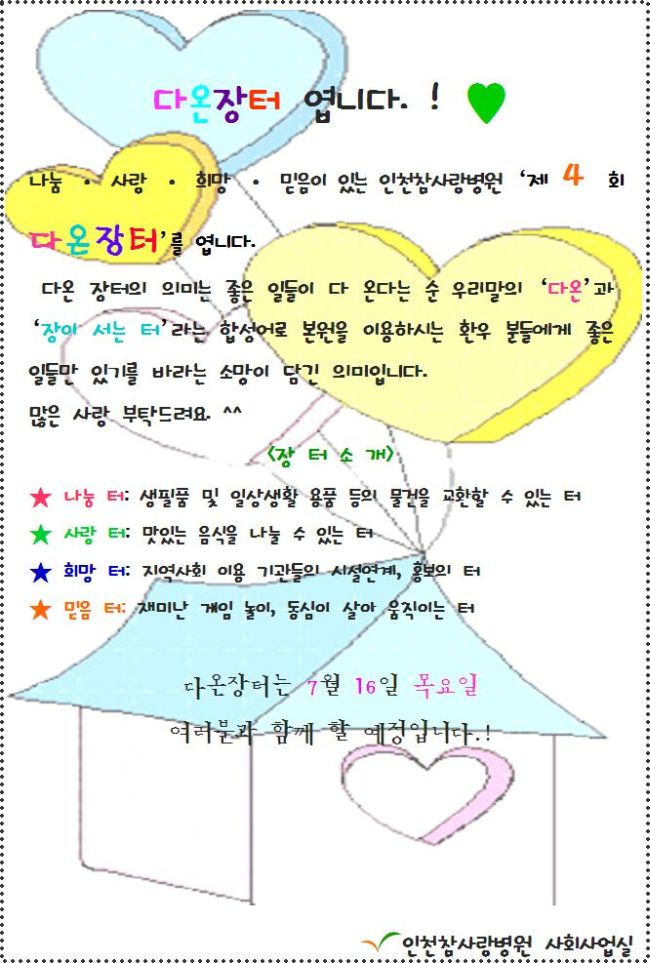 다온장터 엽니다. ! ♥
나눔 · 사랑 · 희망 · 믿음이 있는 인천참사랑병원 ‘제 4 회
다온장터’를 엽니다.
다온 장터의 의미는 좋은 일들이 다 온다는 순 우리말의 ‘다온’과
‘장이 서는 터’라는 합성어로 본원을 이용하시는 환우 분들에게 좋은
일들만 있기를 바라는 소망이 담긴 의미입니다.
많은 사랑 부탁드려요. ^^
<장 터 소 개>
★ 나눔 터: 생필품 및 일상생활 용품 등의 물건을 교환할 수 있는 터
★ 사랑 터: 맛있는 음식을 나눌 수 있는 터
★ 희망 터: 지역사회 이용 기관들의 시설연계, 홍보의 터
★ 믿음 터: 재미난 게임 놀이, 동심이 살아 움직이는 터
다온장터는 7월 16일 목요일
여러분과 함께 할 예정입니다.!
인천참사랑병원 사회사업실